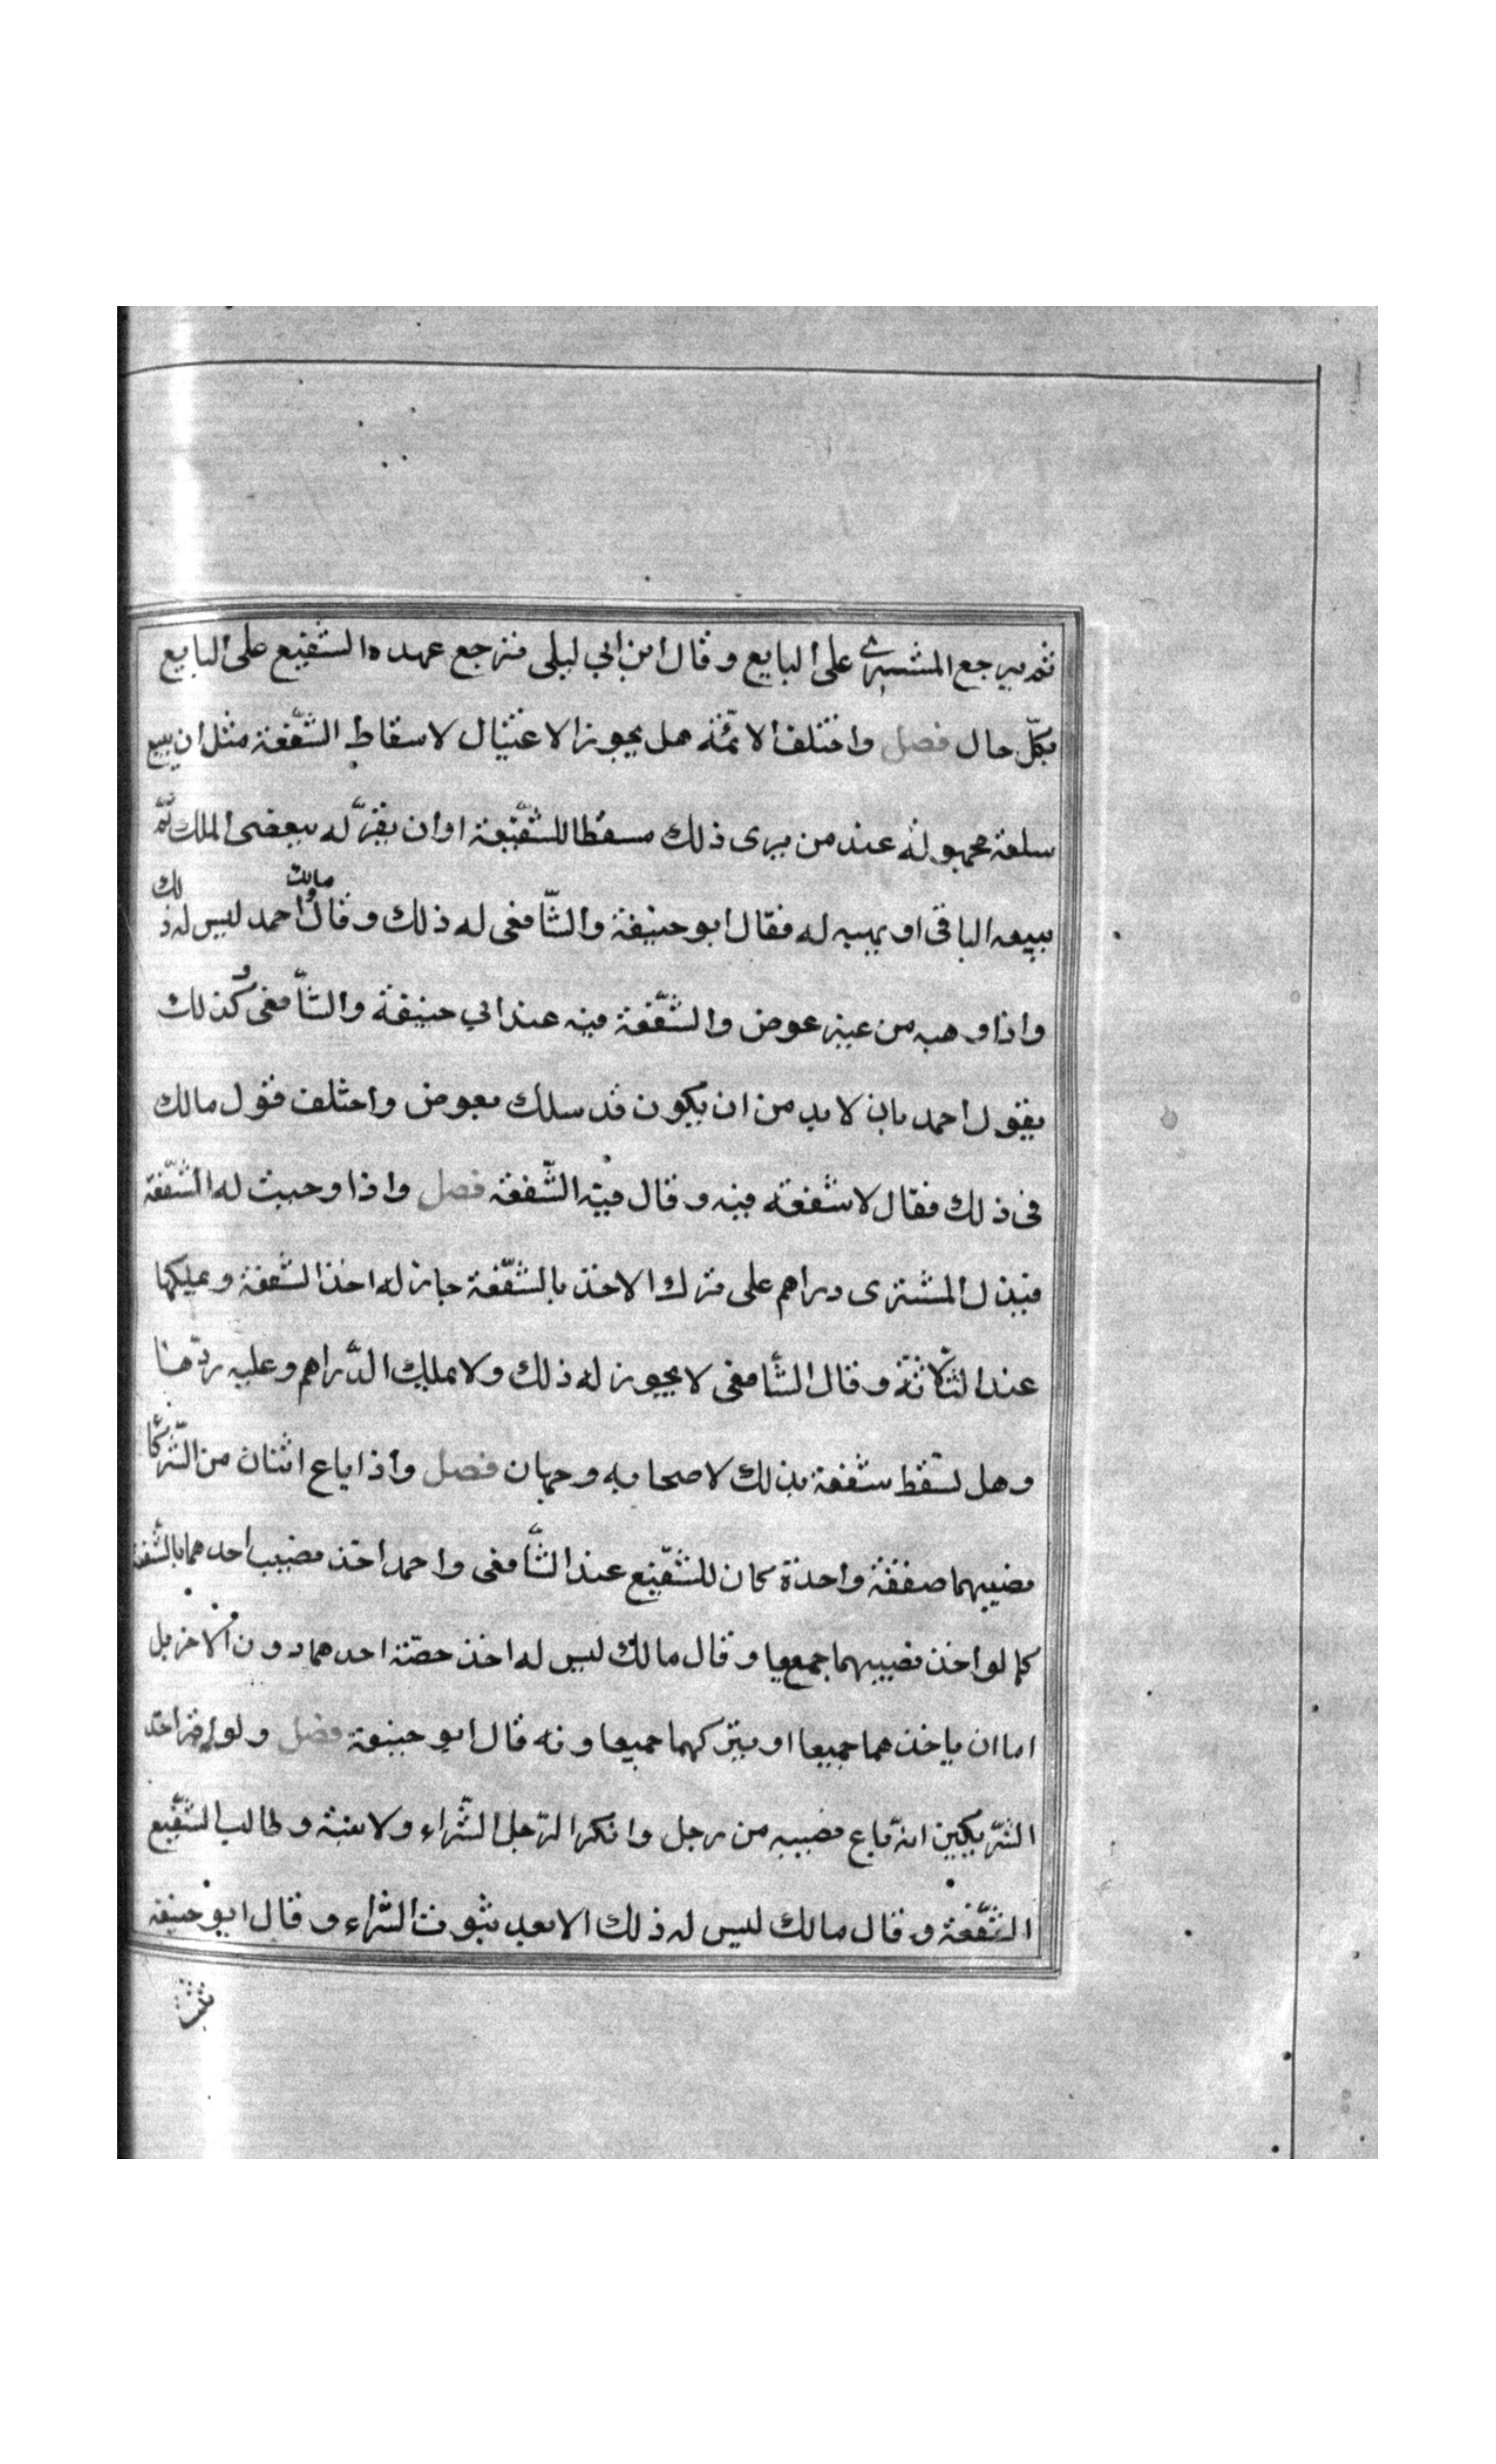 ثم يرجع المشتري على البايع وقال ابن ابي ليلى فترجع عهده الشفيع على البايع
بكل حال فصل واختلف الائمة هل يجوز الاحتيال لاسقاط الشفعة مثل ان يبيع
سلعة مجهولة عند من يرى ذلك مسقطا للشفعة او ان يقر له ببعض الملك ثم
يبيعه الباقي او يهبه له فقال ابو حنيفة والشافعى له ذلك وقال مالك واحمد ليس له ذلك
واذا وهبه من غير عوض والشفعة فيه عند ابي حنيفة والشافعى وكذلك
يقول احمد بان لا بد من ان يكون قد سلك بعوض واختلف قول مالك
فى ذلك فقال لا شفعة فيه وقال فيه الشفعة فصل واذا وجبت له الشفعة
فبذل المشترى دراهم على ترك الاخذ بالشفعة جاز له اخذ الشفعة ويملكها
عند الثلاثة وقال الشافعى لا يجوز له ذلك ولا يملك الدراهم وعليه ردها
وهل تسقط شفعة بذلك لاصحابه وجهان فصل واذا باع اثنان من الشركا
نصيبهما صفقة واحدة كان للشفيع عند الشافعى واحمد اخذ نصيب احدهما بالشفعة
كما لو اخذ نصيبهما جميعا وقال مالك ليس له اخذ حصة احدهما دون الاخر بل
اما ان ياخذهما جميعا او يتركهما جميعا وبه قال ابو حنيفة فصل ولو اقر احد
الشريكين انه باع نصيبه من رجل وانكر الرجل الشراء ولا بينة وطالب الشفيع
الشفعة وقال مالك ليس له ذلك الا بعد ثبوت الشراء وقال ابو حنيفة